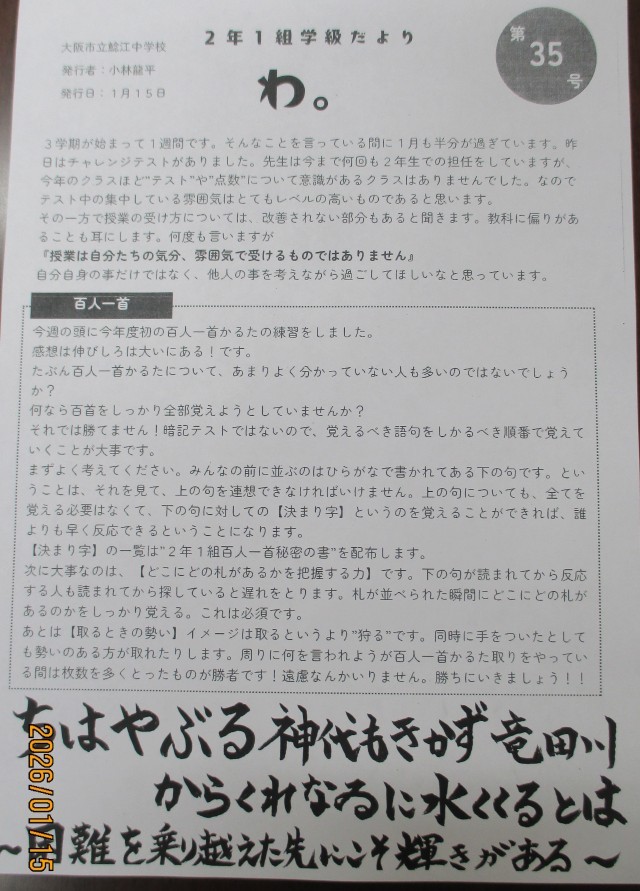 2年1組学級だより
大阪市立鯰江中学校
発行者：小林龍平
発行日：1月15日
わ。
第
35
号
3学期が始まって1週間です。そんなことを言っている間に1月も半分が過ぎています。昨
日はチャレンジテストがありました。先生は今まで何回も2年生での担任をしていますが、
今年のクラスほど"テスト"や"点数"について意識があるクラスはありませんでした。なので
テスト中の集中している雰囲気はとてもレベルの高いものであると思います。
その一方で授業の受け方については、改善されない部分もあると聞きます。教科に偏りがあ
ることも耳にします。何度も言いますが
『授業は自分たちの気分、雰囲気で受けるものではありません』
自分自身の事だけではなく、他人の事を考えながら過ごしてほしいなと思っています。
百人一首
今週の頭に今年度初の百人一首かるたの練習をしました。
感想は伸びしろは大いにある！です。
たぶん百人一首かるたについて、あまりよく分かっていない人も多いのではないでしょう
か？
何なら百首をしっかり全部覚えようとしていませんか？
それでは勝てません！暗記テストではないので、覚えるべき語句をしかるべき順番で覚えて
いくことが大事です。
まずよく考えてください。みんなの前に並ぶのはひらがなで書かれてある下の句です。とい
うことは、それを見て、上の句を連想できなければいけません。上の句についても、全てを
覚える必要はなくて、下の句に対しての【決まり字】というのを覚えることができれば、誰
よりも早く反応できるということになります。
【決まり字】の一覧は"2年1組百人一首秘密の書"を配布します。
次に大事なのは、【どこにどの札があるかを把握する力】です。下の句が読まれてから反応
する人も読まれてから探していると遅れをとります。札が並べられた瞬間にどこにどの札が
あるのかをしっかり覚える。これは必須です。
あとは【取るときの勢い】イメージは取るというより"狩る"です。同時に手をついたとして
も勢いのある方が取れたりします。周りに何を言われようが百人一首かるた取りをやってい
る間は枚数を多くとったものが勝者です！遠慮なんかいりません。勝ちにいきましょう！！
ちはやぶる神代もきかず竜田川
からくれなゐに水くくるとは
～困難を乗り越えた先にこそ輝きがある～
2026/01/15